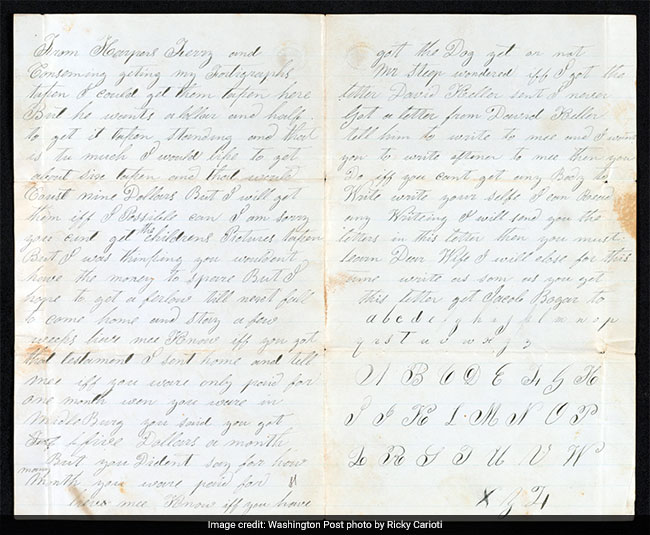 From Harpers Ferry and
Conserning geting my Fortigraphs
tapen I could get them tapen here
But he wants a dollar and half
to get it tapen standing and that
is tu much I would like to get
about six tapen and that would
Coust nine Dollars But I will get
them iff I Possible can I am sorry
you cint get the childrens Pictures tapen
But I was thinking you wouldent
have the money to spare But I
hope to get a ferlow till next fall
to come home and stay a few
weeks leave mee Know iff you got
that testament I sent home and tell
mee iff you ware only paid for
one month wen you ware in
you said you got
five Dollars a month
But you Dident say for how
many Month you ware paid for
leave mee Know iff you have
got the Dog yet or not
Mr Sleep wondered iff I got the
letter David Keller sent I never
Got a letter from David Keller
tell him to write to mee and I want
you to write oftener to mee then you
Do iff you cant get any Body to
Write write your selfe I can Read
any Writeing I will send you the
letters in this letter then you must
learn Dear Wife I will close for this
time write as soon as you get
this letter get Jacob Bogar to
a b c d e f g h i j k l m n o p
q r s t u v w x y z
A B C D E F G H
I J K L M N O P
Q R S T U V W
X Y Z
Image credit: Washington Post photo by Ricky Carioti